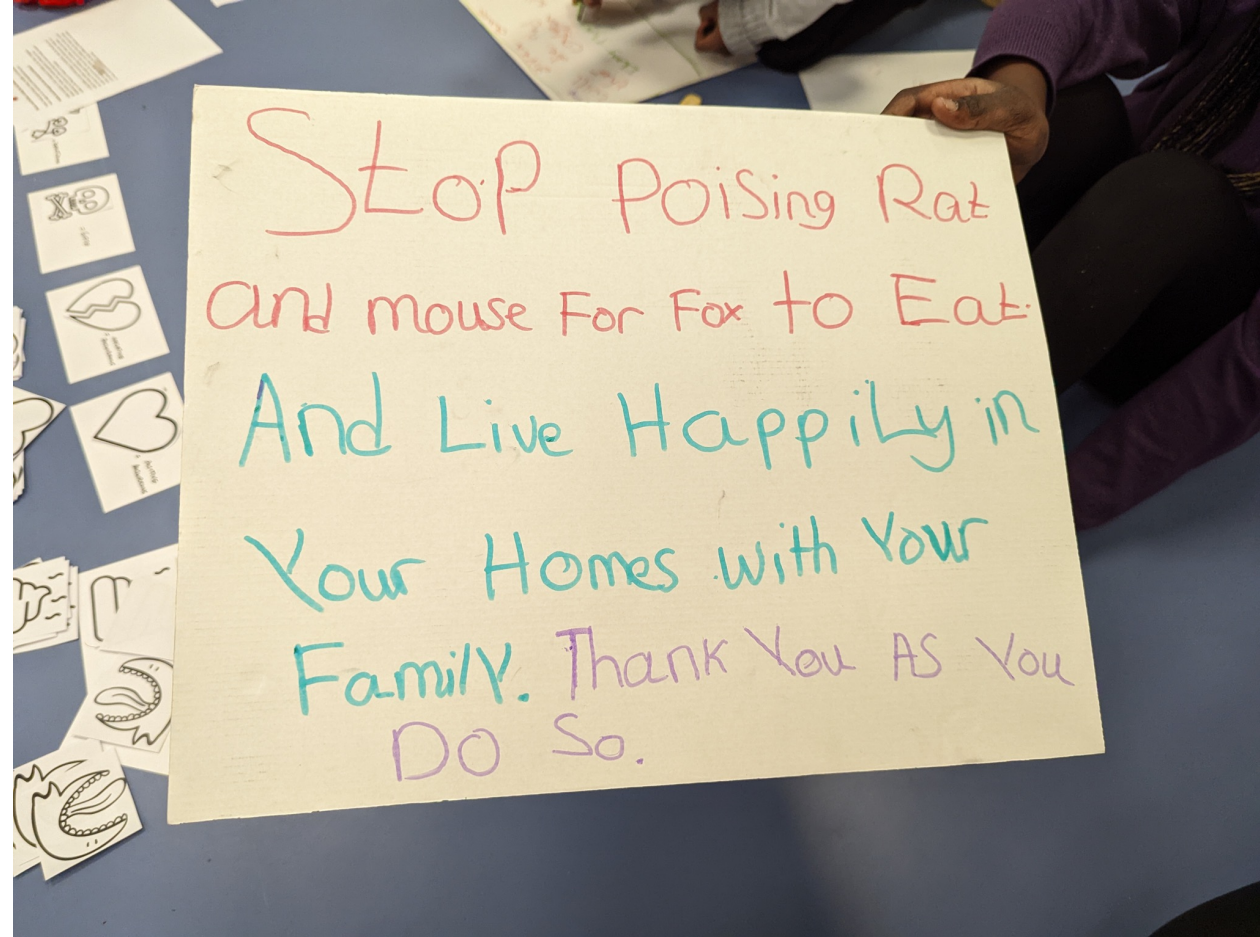 Stop Poising Rat
and mouse For Fox to Eat.
And Live Happily in
Your Homes with Your
Family. Thank You As You
Do So.